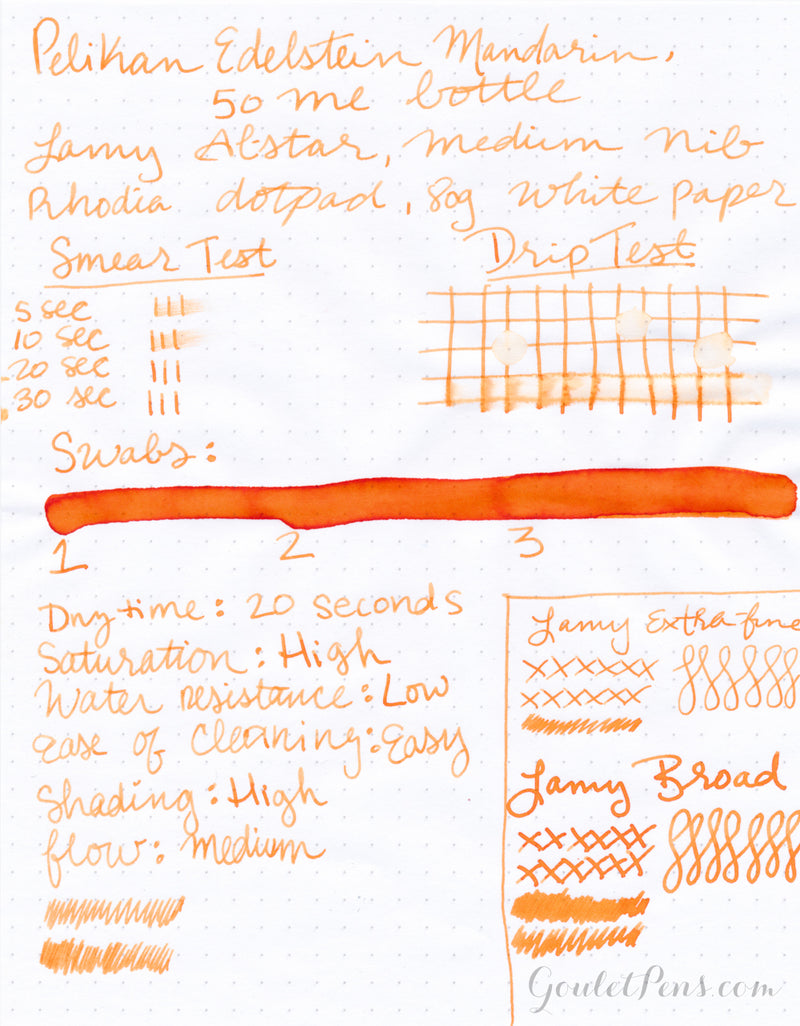 Pelikan Edelstein Mandarin,
50 ml bottle
Lamy Al-star, medium nib
Rhodia dotpad, 80g white paper
Smear Test
Drip Test
5 sec
10 sec
20 sec
30 sec
Swabs:
1 2 3
Dry time: 20 seconds
Saturation: High
Water resistance: Low
ease of cleaning: Easy
Shading: High
flow: medium
Lamy Extra-fine
xxxxxx
xxxxxx
Lamy Broad
xxxxxx
xxxxxx
GouletPens.com